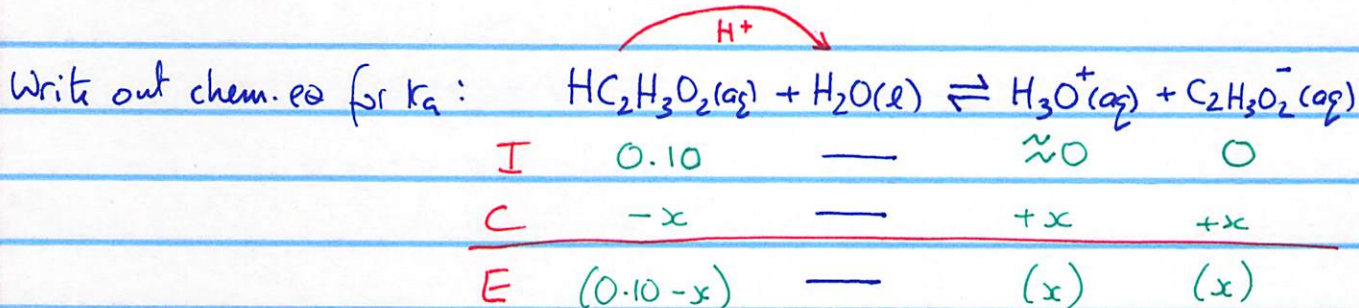 H⁺
Write out chem. eq for Ka : HC₂H₃O₂(aq) + H₂O(l) ⇌ H₃O⁺(aq) + C₂H₃O₂⁻(aq)
I 0.10 — ≈0 0
C -x — +x +x
E (0.10-x) — (x) (x)